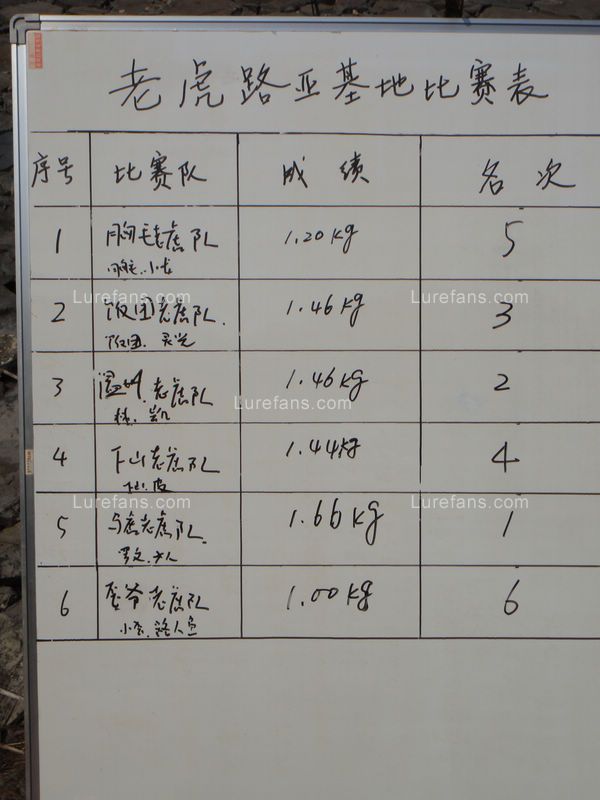 老虎路亚基地比赛表
序号 比赛队 成绩 名次
1 胸毛老虎队 1.20kg 5
胸毛.小龙
Lurefans.com Lurefans.com
2 饭团老虎队. 1.46kg 3
饭团.
3 温州老虎队 1.46kg 2
Lurefans.com
林.凯
4 下山老虎队 1.44kg 4
下山.
Lurefans.com Lurefans.com
5 老虎队. 1.66kg 1
6 爷老虎队 1.00kg 6
小李.路人鱼
Lurefans.com